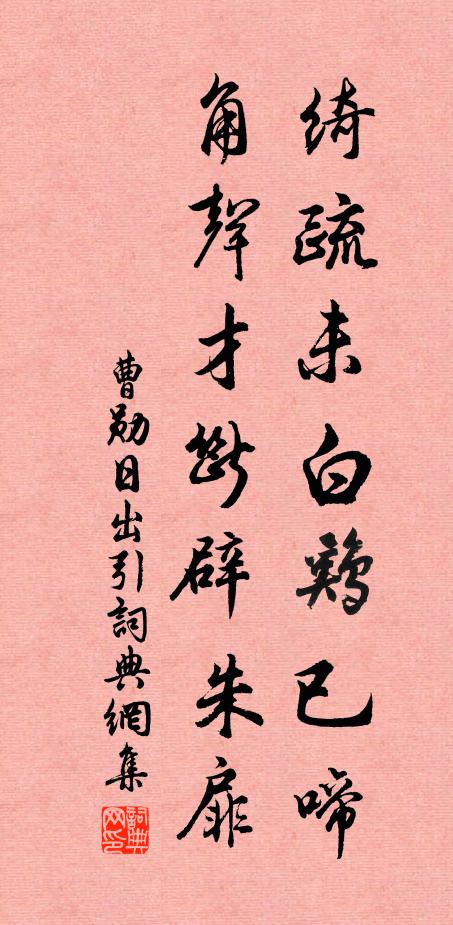 綺疏未白鷄已啼
角聲才斷辟朱扉
曹勛日出引詞典網集
詞典网印